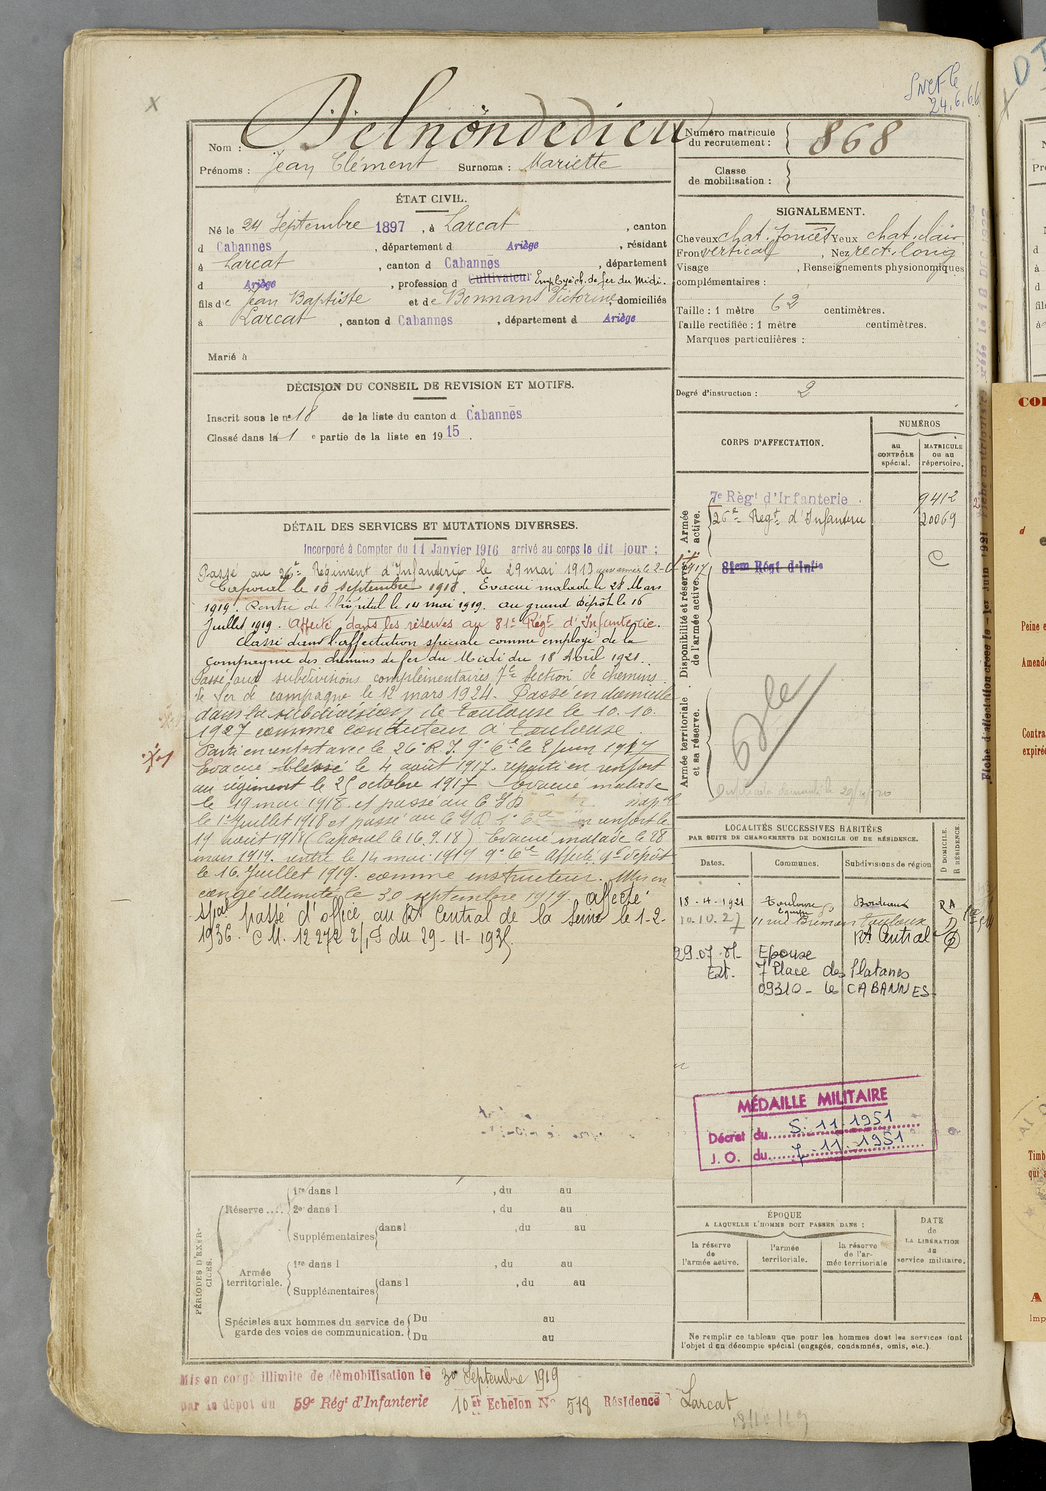 SNCF le
24.6.66
Nom : Delnondedieu
Prénoms : Jean Clément Surnoms : Mariette
Numéro matricule du recrutement : 868
Classe de mobilisation :
ÉTAT CIVIL.
Né le 24 Septembre 1897, à Larcat, canton
d Cabannes, département d Ariège, résidant
à Larcat, canton d Cabannes, département
d Ariège, profession d Cultivateur Employé ch. de fer du Midi.
fils de Jean Baptiste et de Bonnans Victorine domiciliés
à Larcat, canton d Cabannes, département d Ariège
Marié à
SIGNALEMENT.
Cheveux chat. foncés Yeux chat. clair
Front vertical, Nez rect. long
Visage , Renseignements physionomiques
complémentaires :
Taille : 1 mètre 62 centimètres.
Taille rectifiée : 1 mètre centimètres.
Marques particulières :
Degré d'instruction : 2
DÉCISION DU CONSEIL DE REVISION ET MOTIFS.
Inscrit sous le no 18 de la liste du canton d Cabannes
Classé dans la 1 e partie de la liste en 1915.
CORPS D'AFFECTATION.
NUMÉROS
au CONTRÔLE spécial.
MATRICULE ou au répertoire.
Armée active.
7e Régt d'Infanterie. 9412
26e Regt d'Infanterie 20069
Disponibilité et réserve de l'armée active.
81em Régt d'Infie
C
Armée territoriale et sa réserve.
DÉTAIL DES SERVICES ET MUTATIONS DIVERSES.
Incorporé à Compter du 11 Janvier 1916 arrivé au corps le dit jour ;
Passé au 26e Régiment d'Infanterie le 29 mai 1917
Caporal le 16 septembre 1918. Evacué malade le 28 Mars
1919. Rentré de l'hôpital le 14 mai 1919. au grand Dépôt le 16
Juillet 1919. Affecté dans les réserves au 81e Régt d'Infanterie.
Classé dans l'affectation spéciale comme employé de la
Compagnie des chemins de fer du Midi du 18 Avril 1921.
Passé aux subdivisions complémentaires 7e Section de chemins
de fer de campagne le 12 mars 1924. Passé en domicile
dans la subdivision de Toulouse le 10.10.
1927 comme conducteur à Toulouse.
Parti en renfort avec le 26e R.I. 9e Cie le 2 juin 1917
Evacué blessé le 4 août 1917. reparti en renfort
au régiment le 25 octobre 1917. Evacué malade
le 19 mai 1918 et passé au C I D
le 1er Juillet 1918 et passé au C I D en renfort le
19 août 1918 (Caporal le 16.9.18) Evacué malade le 28
mars 1919. rentré le 14 mai 1919 9e Cie Affecté gd dépôt
le 16 Juillet 1919. comme instructeur. Mis en
congé illimité le 30 septembre 1919. affecté
spal passé d'office au Rt Central de la Seine le 1-2-
1936. C.M. 12272 2/1S du 29-11-1935.
LOCALITÉS SUCCESSIVES HABITÉES
PAR SUITE DE CHANGEMENTS DE DOMICILE OU DE RÉSIDENCE.
Dates. Communes. Subdivisions de région D DOMICILE. R RÉSIDENCE.
18-4-1921 Toulouse Bordeaux RA
10.10.27 11 rue Brémon Toulouse D
Rt Central
29.07. Epouse
Ext. 7 Place des Platanes
09310 - les CABANNES
MÉDAILLE MILITAIRE
Décret du 5.11.1951
J. O. du 7-11-1951
PÉRIODES D'EXERCICES.
Réserve .... 1re dans l , du au
2e dans l , du au
Supplémentaires dans l , du au
Armée territoriale. 1re dans l , du au
Supplémentaires dans l , du au
Spéciales aux hommes du service de garde des voies de communication. Du au
Du au
ÉPOQUE
A LAQUELLE L'HOMME DOIT PASSER DANS :
la réserve de l'armée active.
l'armée territoriale.
la réserve de l'armée territoriale
DATE de LA LIBÉRATION du service militaire.
Ne remplir ce tableau que pour les hommes dont les services font
l'objet d'un décompte spécial (engagés, condamnés, omis, etc.)
Mis en congé illimité de démobilisation le 30 Septembre 1919
par le dépôt du 59e Régt d'Infanterie 10e Echelon No 518 Résidence Larcat